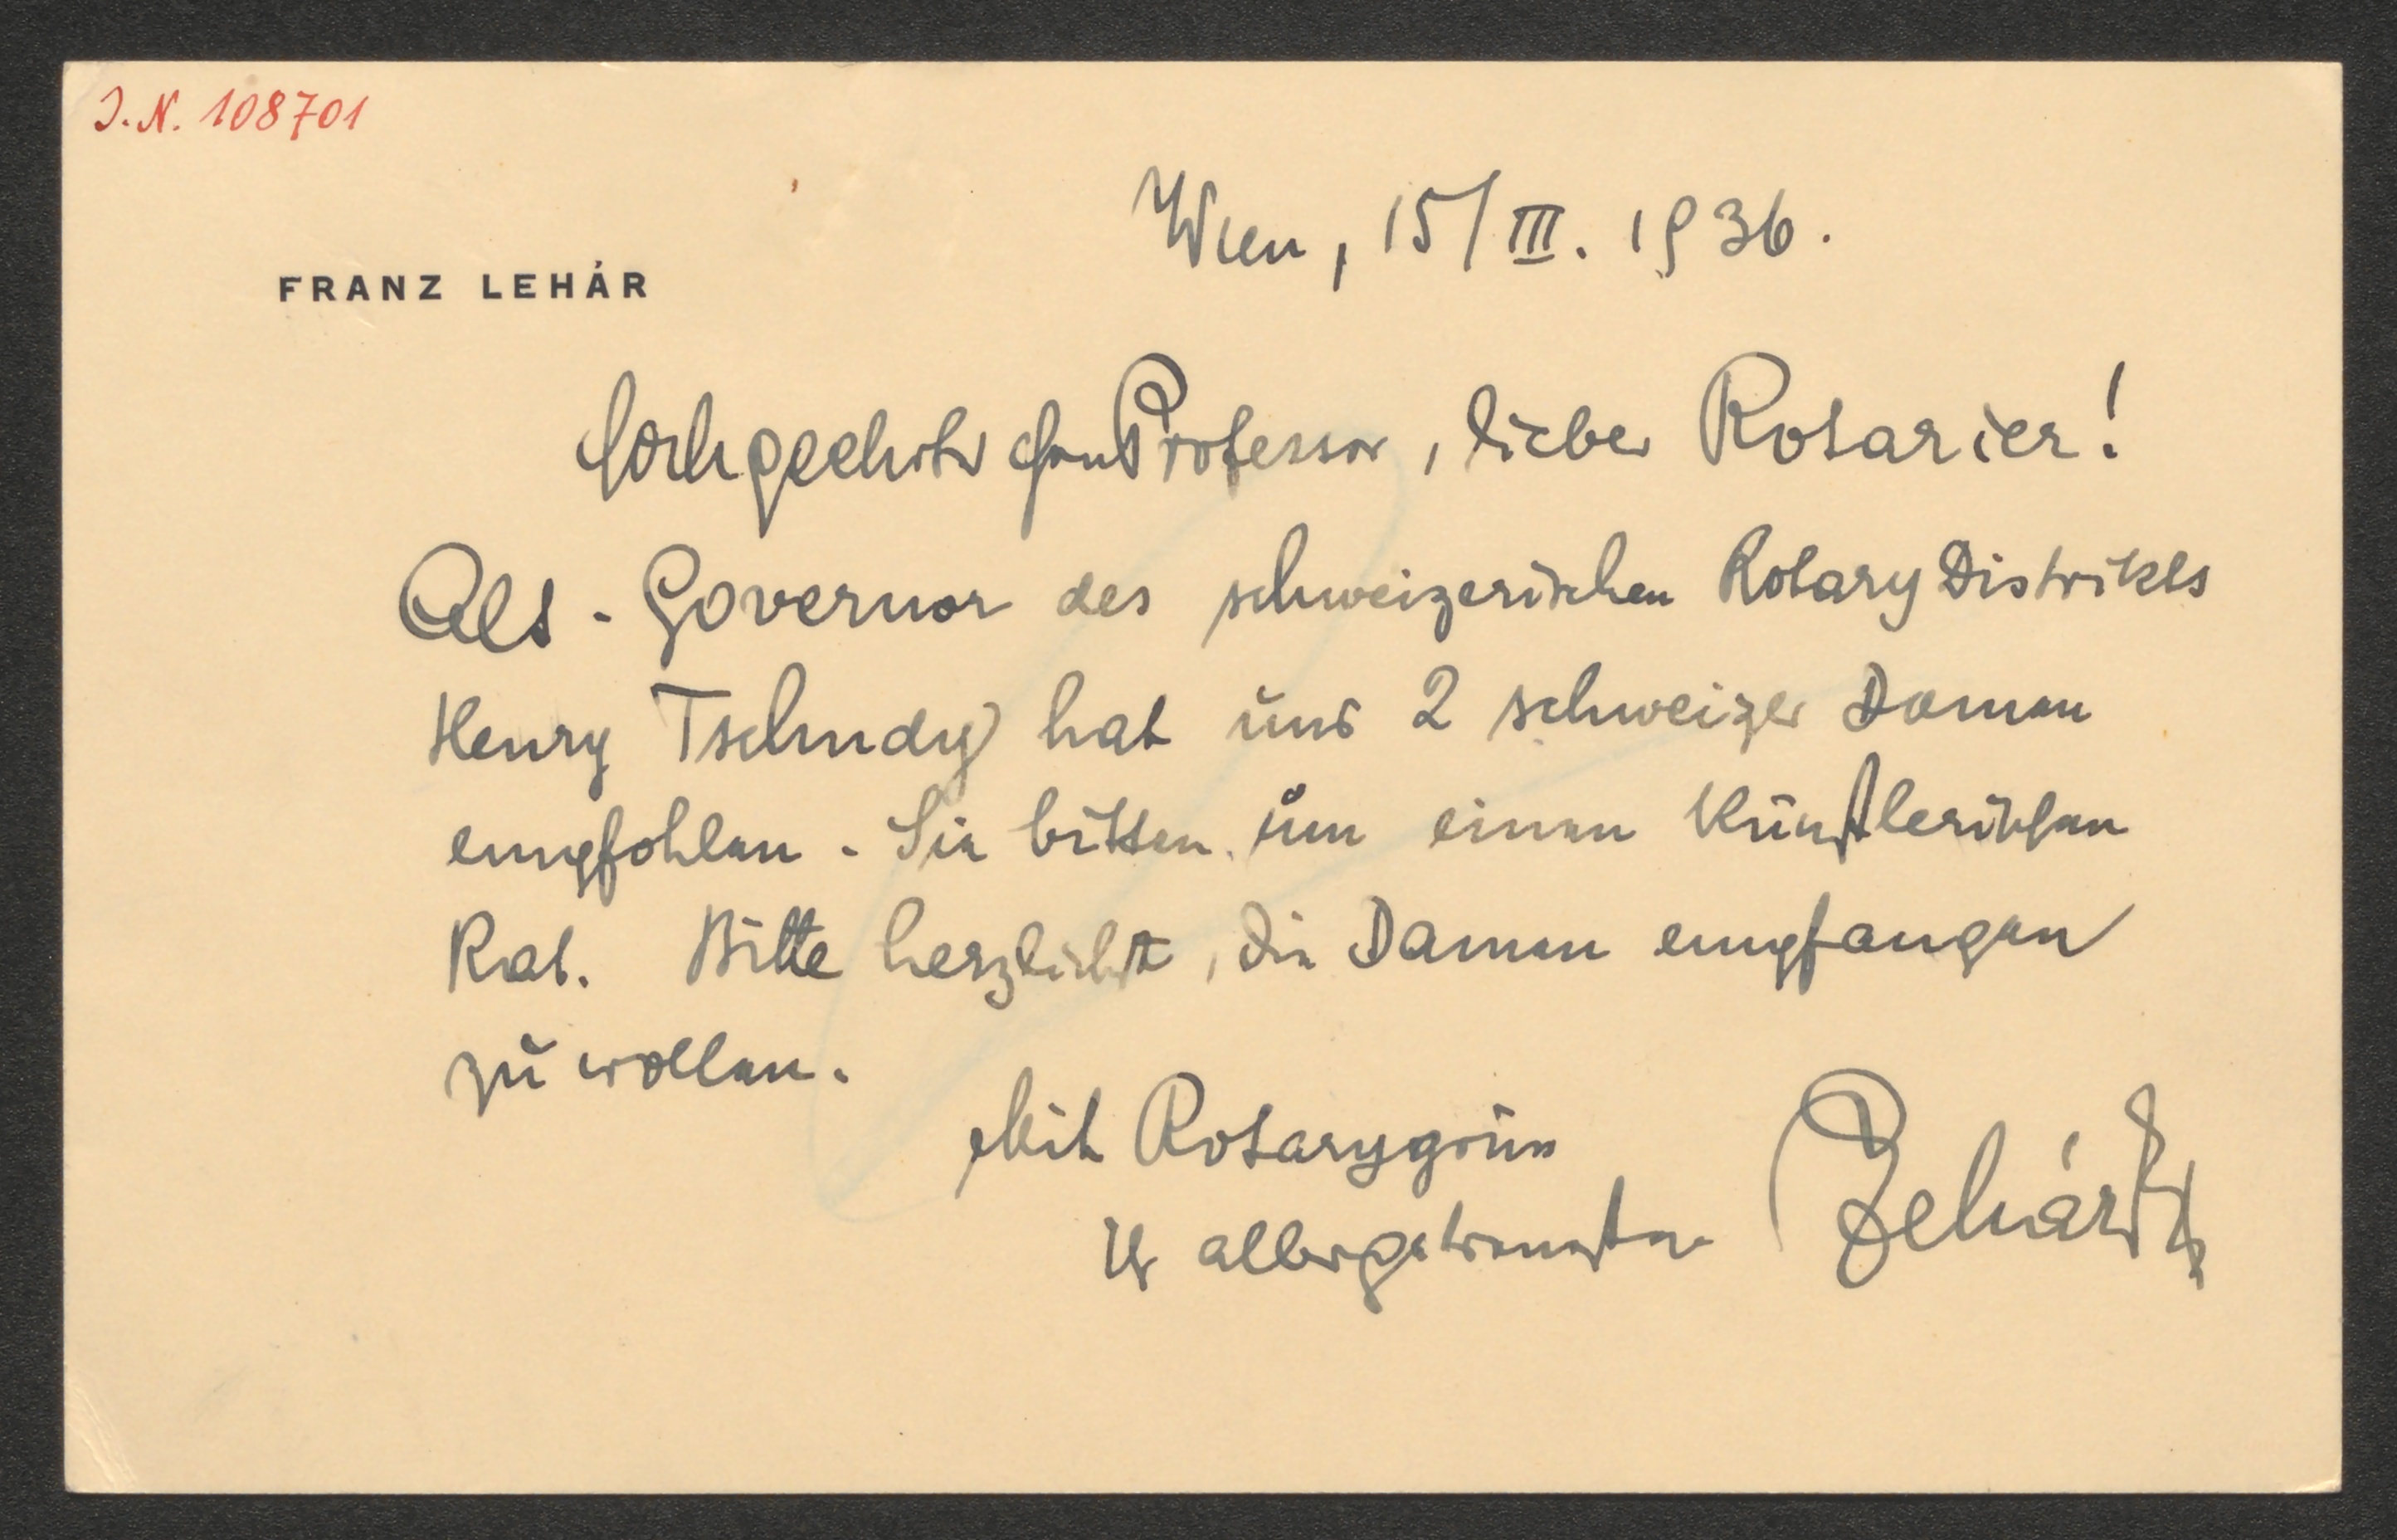 I.N. 108701
Wien, 15/III. 1936.
FRANZ LEHÁR
Hochgeehrter Herr Professor, lieber Rotarier!
Alt-Governor des schweizerischen Rotary Distrikts
Henry Tschudy hat uns 2 schweizer Damen
empfohlen. Sie bitten um einen künstlerischen
Rat. Bitte herzlichst, die Damen empfangen
zu wollen.
Mit Rotarygruss
Ihr allergetreuester Lehár